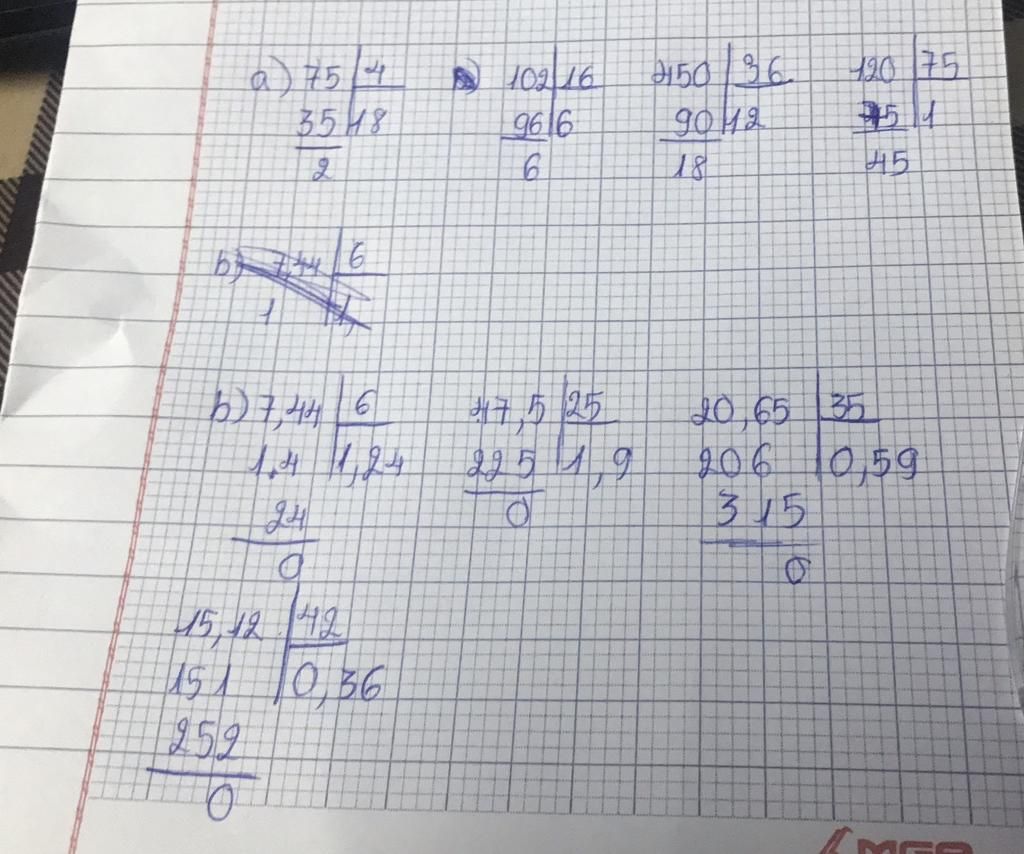 a) 75 4 102 16 450 36 120 75
35 18 96 6 90 12 75 1
2 6 18 45
b) 7,44 6
1 1,
b) 7,44 6 47,5 25 20,65 35
1.4 1,24 225 1,9 206 0,59
24 0 315
0 0
15,12 42
151 0,36
252
0